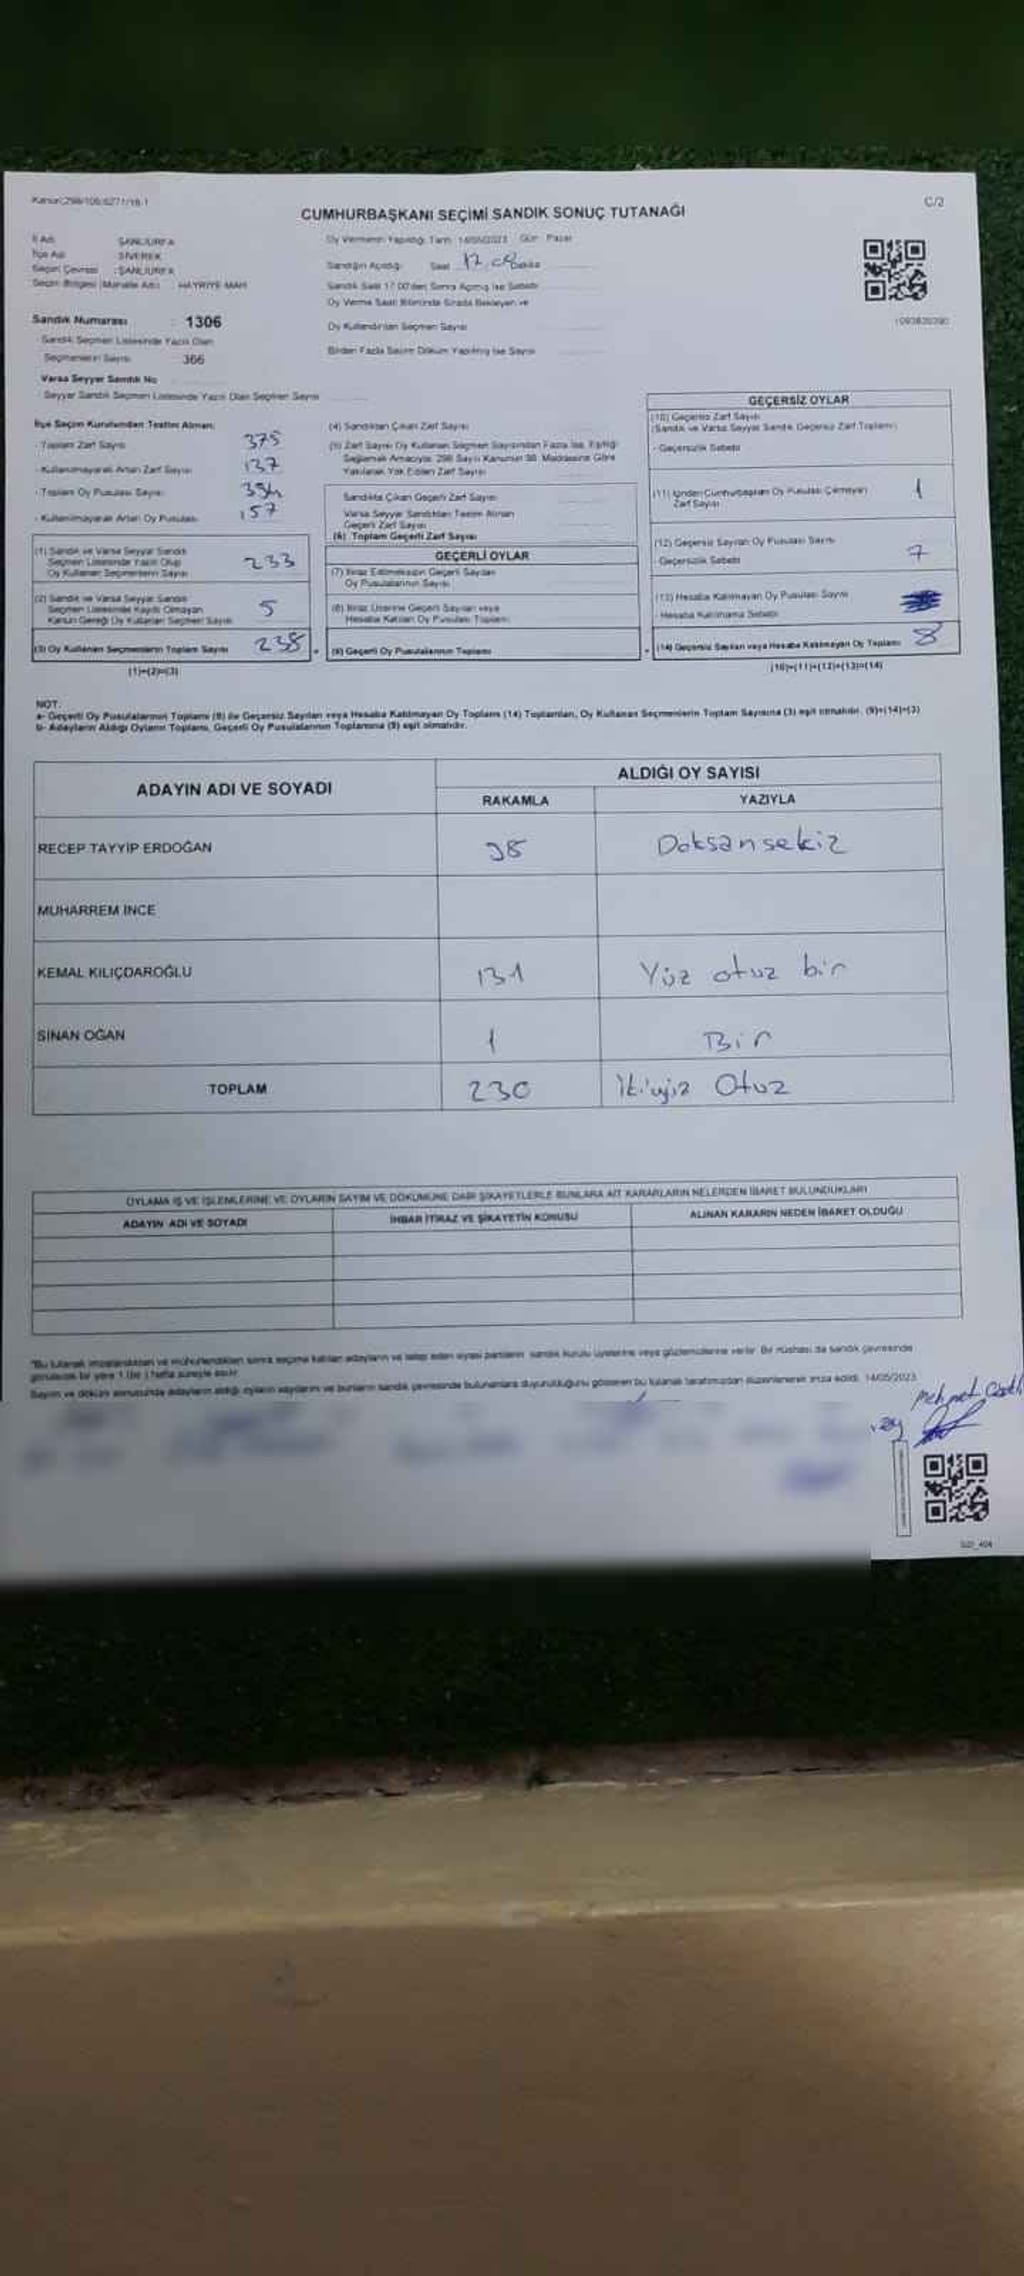 Kanun:298/105;6271/18-1
C/2
CUMHURBAŞKANI SEÇİMİ SANDIK SONUÇ TUTANAĞI
İl Adı : ŞANLIURFA
İlçe Adı : SİVEREK
Seçim Çevresi : ŞANLIURFA
Seçim Bölgesi (Mahalle Adı) : HAYRİYE MAH
Sandık Numarası : 1306
Sandık Seçmen Listesinde Yazılı Olan
Seçmenlerin Sayısı 366
Varsa Seyyar Sandık No
Seyyar Sandık Seçmen Listesinde Yazılı Olan Seçmen Sayısı
Oy Vermenin Yapıldığı Tarih 14/05/2023 Gün : Pazar
Sandığın Açıldığı Saat 17.00 Dakika
Sandık Saat 17.00'den Sonra Açılmış İse Sebebi
Oy Verme Saati Bitiminde Sırada Bekleyen ve
Oy Kullandırılan Seçmen Sayısı
Birden Fazla Sayım Döküm Yapılmış İse Sayısı
İlçe Seçim Kurulundan Teslim Alınan:
- Toplam Zarf Sayısı 375
- Kullanılmayarak Artan Zarf Sayısı 137
- Toplam Oy Pusulası Sayısı 394
- Kullanılmayarak Artan Oy Pusulası 157
(1) Sandık ve Varsa Seyyar Sandık
Seçmen Listesinde Yazılı Olup
Oy Kullanan Seçmenlerin Sayısı 233
(2) Sandık ve Varsa Seyyar Sandık
Seçmen Listesinde Kaydı Olmayan
Kanun Gereği Oy Kullanan Seçmen Sayısı 5
(3) Oy Kullanan Seçmenlerin Toplam Sayısı 238
(1)+(2)=(3)
(4) Sandıktan Çıkan Zarf Sayısı
(5) Zarf Sayısı Oy Kullanan Seçmen Sayısından Fazla İse, Eşitliği
Sağlamak Amacıyla 298 Sayılı Kanunun 98. Maddesine Göre
Yakılarak Yok Edilen Zarf Sayısı
Sandıkta Çıkan Geçerli Zarf Sayısı
Varsa Seyyar Sandıktan Teslim Alınan
Geçerli Zarf Sayısı
(6) Toplam Geçerli Zarf Sayısı
GEÇERLİ OYLAR
(7) İtiraz Edilmeksizin Geçerli Sayılan
Oy Pusulalarının Sayısı
(8) İtiraz Üzerine Geçerli Sayılan veya
Hesaba Katılan Oy Pusulası Toplamı
(9) Geçerli Oy Pusulalarının Toplamı
GEÇERSİZ OYLAR
(10) Geçersiz Zarf Sayısı
(Sandık ve Varsa Seyyar Sandık Geçersiz Zarf Toplamı)
- Geçersizlik Sebebi
(11) İçinden Cumhurbaşkanı Oy Pusulası Çıkmayan
Zarf Sayısı 1
(12) Geçersiz Sayılan Oy Pusulası Sayısı
Geçersizlik Sebebi 7
(13) Hesaba Katılmayan Oy Pusulası Sayısı
Hesaba Katılmama Sebebi
(14) Geçersiz Sayılan veya Hesaba Katılmayan Oy Toplamı 8
(10)+(11)+(12)+(13)=(14)
NOT:
a- Geçerli Oy Pusulalarının Toplamı (9) ile Geçersiz Sayılan veya Hesaba Katılmayan Oy Toplamı (14) Toplamları, Oy Kullanan Seçmenlerin Toplam Sayısına (3) eşit olmalıdır. (9)+(14)=(3)
b- Adayların Aldığı Oyların Toplamı, Geçerli Oy Pusulalarının Toplamına (9) eşit olmalıdır.
ADAYIN ADI VE SOYADI
ALDIĞI OY SAYISI
RAKAMLA YAZIYLA
RECEP TAYYİP ERDOĞAN 98 Doksansekiz
MUHARREM İNCE
KEMAL KILIÇDAROĞLU 131 Yüz otuz bir
SİNAN OĞAN 1 Bir
TOPLAM 230 İkiyüz Otuz
OYLAMA İŞ VE İŞLEMLERİNE VE OYLARIN SAYIM VE DÖKÜMÜNE DAİR ŞİKAYETLERLE BUNLARA AİT KARARLARIN NELERDEN İBARET BULUNDUKLARI
ADAYIN ADI VE SOYADI İHBAR İTİRAZ VE ŞİKAYETİN KONUSU ALINAN KARARIN NEDEN İBARET OLDUĞU
*Bu tutanak imzalandıktan ve mühürlendikten sonra seçime katılan adayların ve talep eden siyasi partilerin sandık kurulu üyelerine veya gözlemcilerine verilir. Bir nüshası da sandık çevresinde
görülecek bir yere 1 (bir) hafta süreyle asılır.
Sayım ve döküm sonucunda adayların aldığı oyların sayılarını ve bunların sandık çevresinde bulunanlara duyurulduğunu gösteren bu tutanak tarafımızdan düzenlenerek imza edildi. 14/05/2023
Mehmet